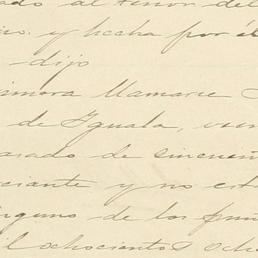 ado al tenor del
y hecha por él
dijo
llamarse
de Iguala, vecin
asado de cincuen
ciante y no est
inguno de los pun
l ochocientos och